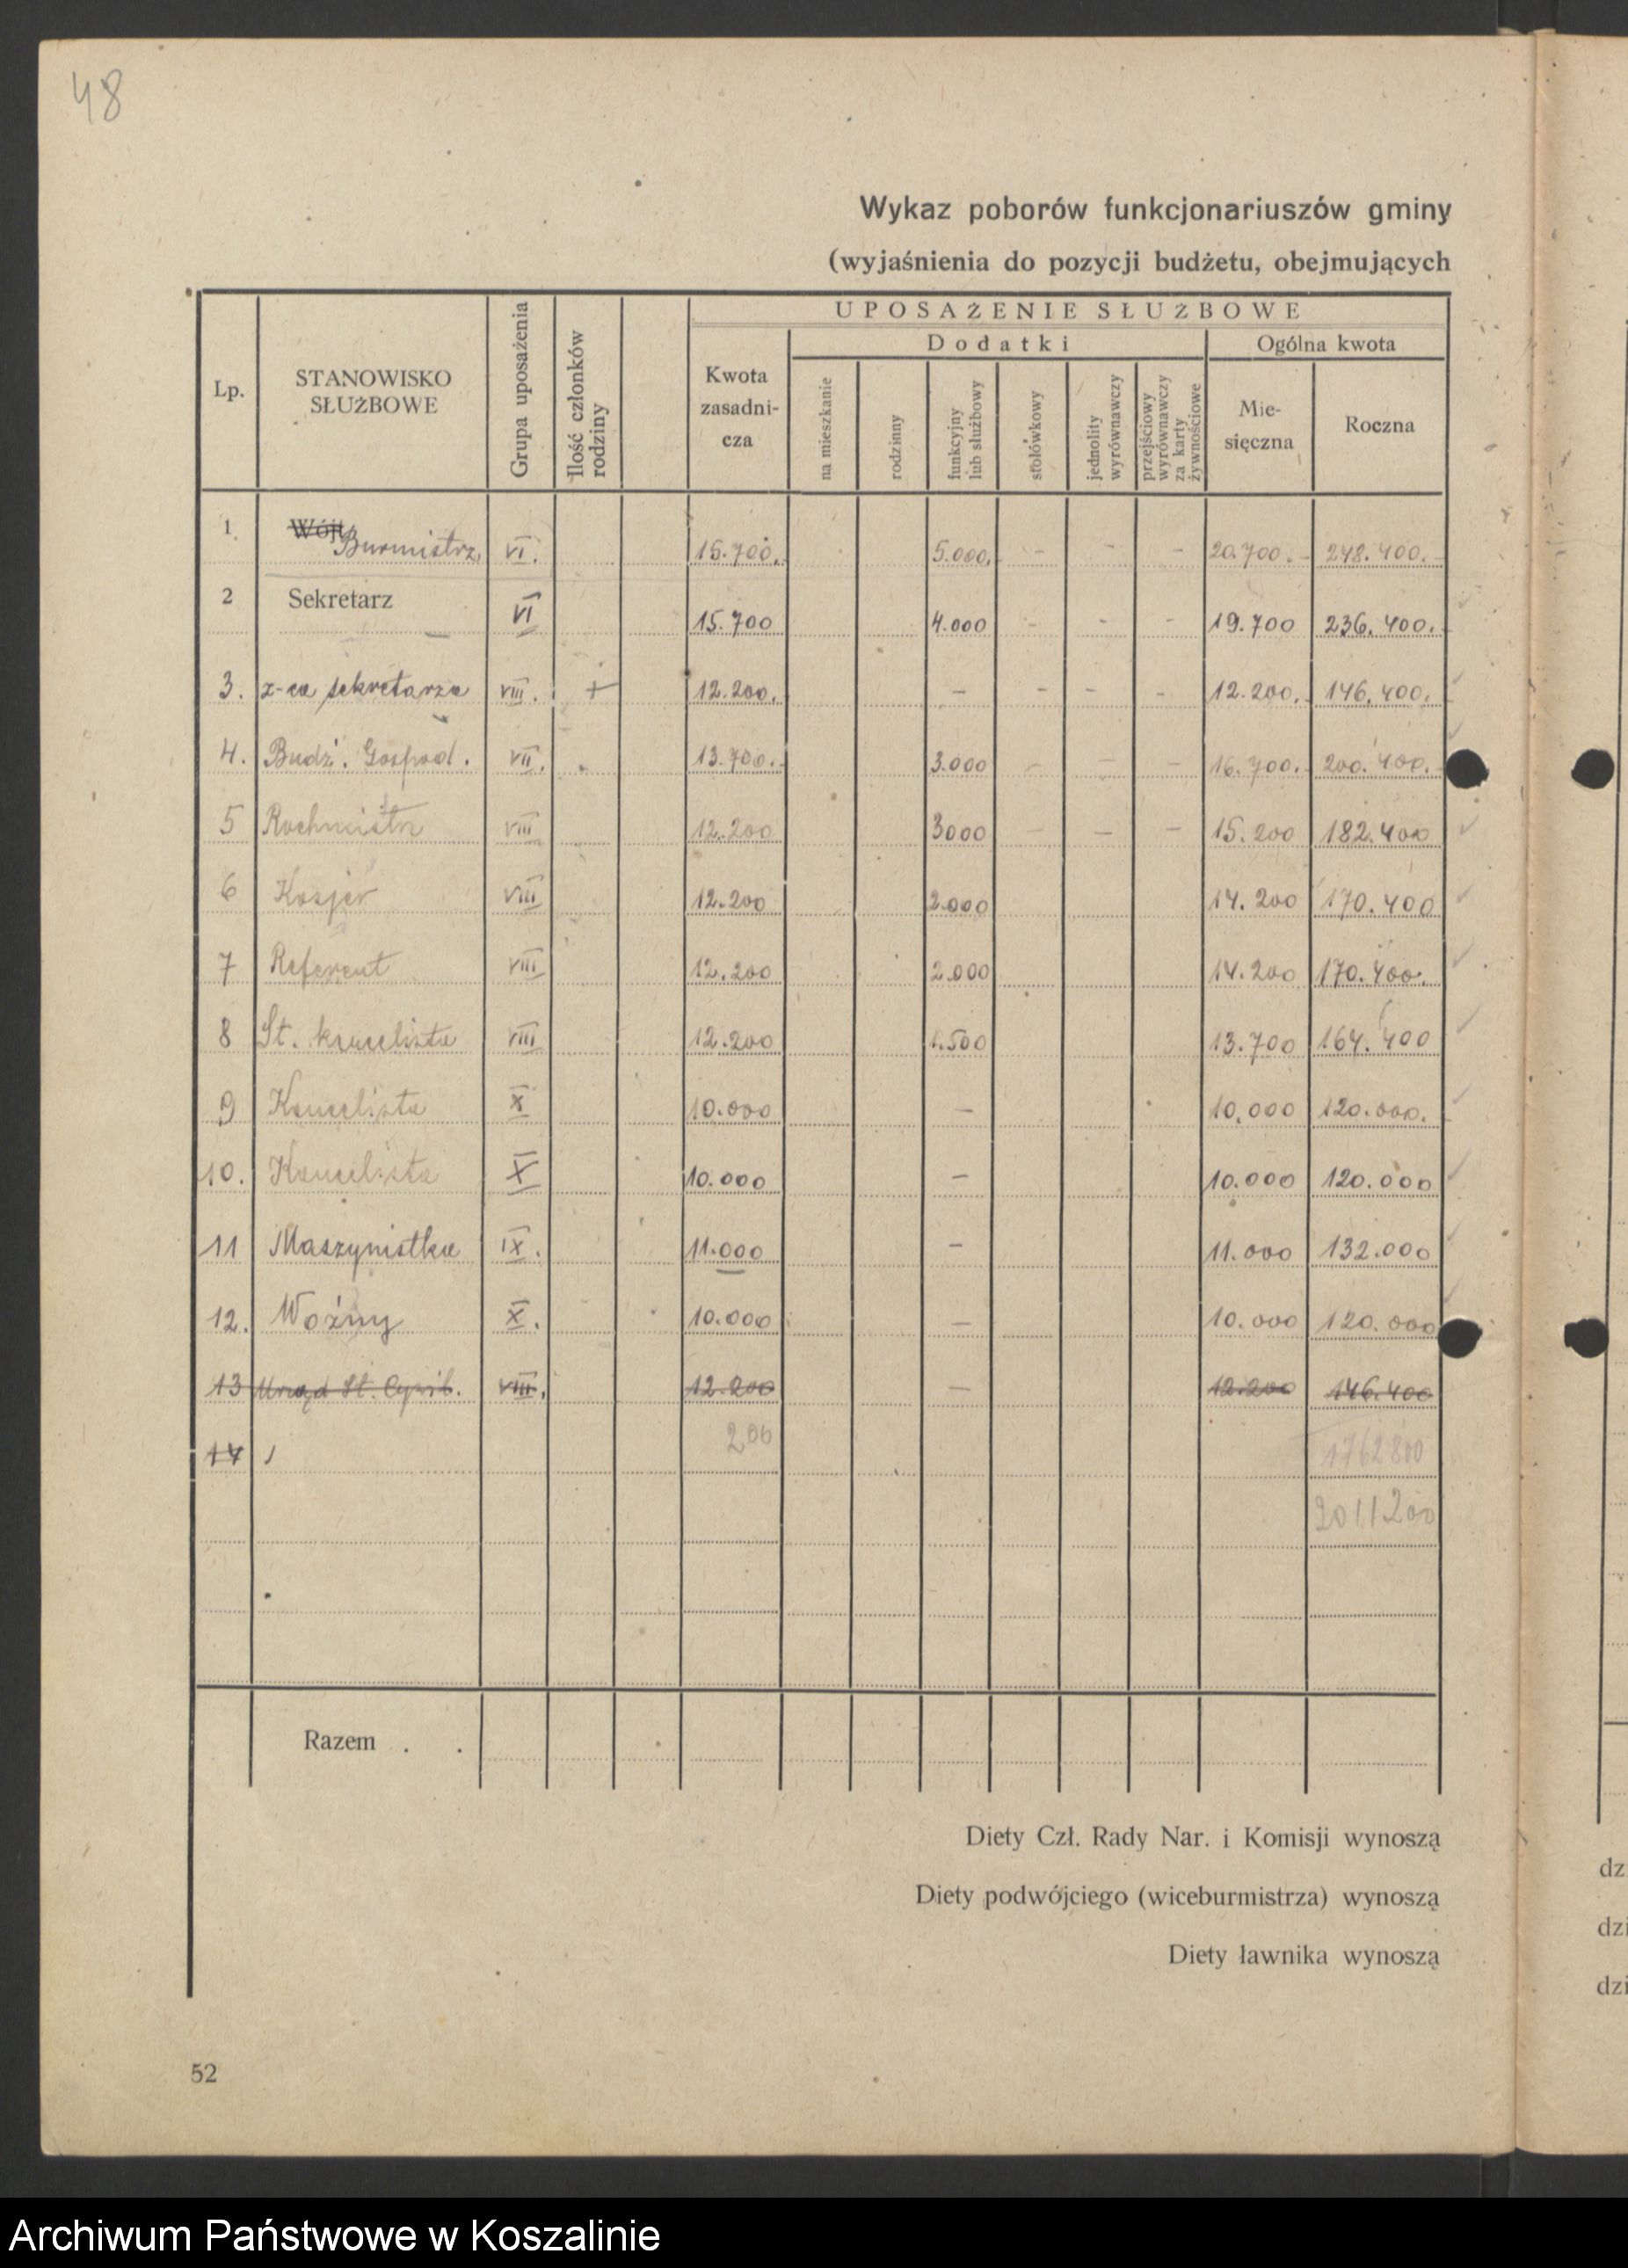 48
Wykaz poborów funkcjonariuszów gminy
(wyjaśnienia do pozycji budżetu, obejmujących
UPOSAŻENIE SŁUŻBOWE
Dodatki
Ogólna kwota
Lp.
STANOWISKO
SŁUŻBOWE
Grupa uposażenia
Ilość członków
rodziny
Kwota
zasadni-
cza
na mieszkanie
rodzinny
funkcyjny
lub służbowy
stołówkowy
jednolity
wyrównawczy
przejściowy
wyrównawczy
za karty
żywnościowe
Mie-
sięczna
Roczna
1. Wójt Burmistrz VI. 15.700. 5.000. - - - 20.700.- 248.400.-
2 Sekretarz VI 15.700 4.000 - - - 19.700 236.400.
3. z-ca sekretarza VIII. + 12.200. - - - - 12.200.- 146.400.
4. Budż. Gospod. VII. 13.700.- 3.000 - - - 16.700.- 200.400.-
5 Rachmistrz VIII 12.200 3000 - - - 15.200 182.400
6 Kasjer VIII 12.200 2.000 14.200 170.400
7 Referent VIII 12.200 2.000 14.200 170.400.
8 St. kancelista VIII 12.200 1.500 13.700 164.400
9 Kancelista X 10.000 - 10.000 120.000.
10. Kancelista X 10.000 - 10.000 120.000
11 Maszynistka IX. 11.000 - 11.000 132.000
12. Woźny X. 10.000 - 10.000 120.000
13 Urząd St. Cywil. VIII. 12.200 - 12.200 146.400
14 200 1762800
2011200
Razem . .
Diety Czł. Rady Nar. i Komisji wynoszą
Diety podwójciego (wiceburmistrza) wynoszą
Diety ławnika wynoszą
dz
dzi
dzi
52
Archiwum Państwowe w Koszalinie